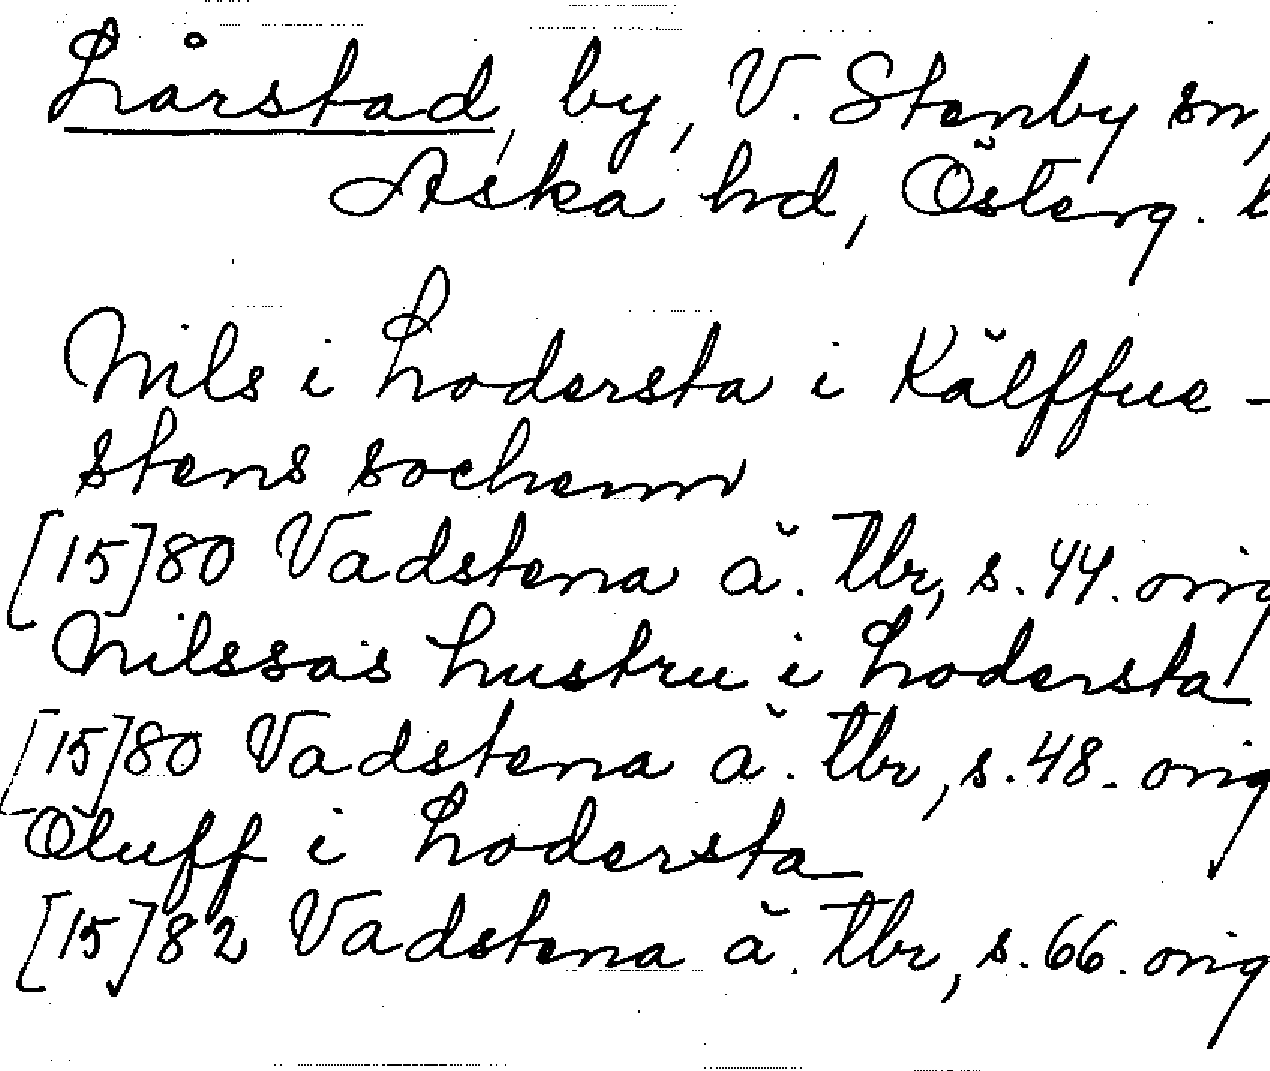 Lårstad, by, V. Stenby sn,
Aska hd, Österg. l
Nils i Lodersta i Kälffue-
stens sochenn
[15]80 Vadstena ä. tbr, s. 44. orig
Nilssas hustru i Lodersta
[15]80 Vadstena ä. tbr, s. 48. orig
Oluff i Lodersta
[15]82 Vadstena ä. tbr, s. 66. orig